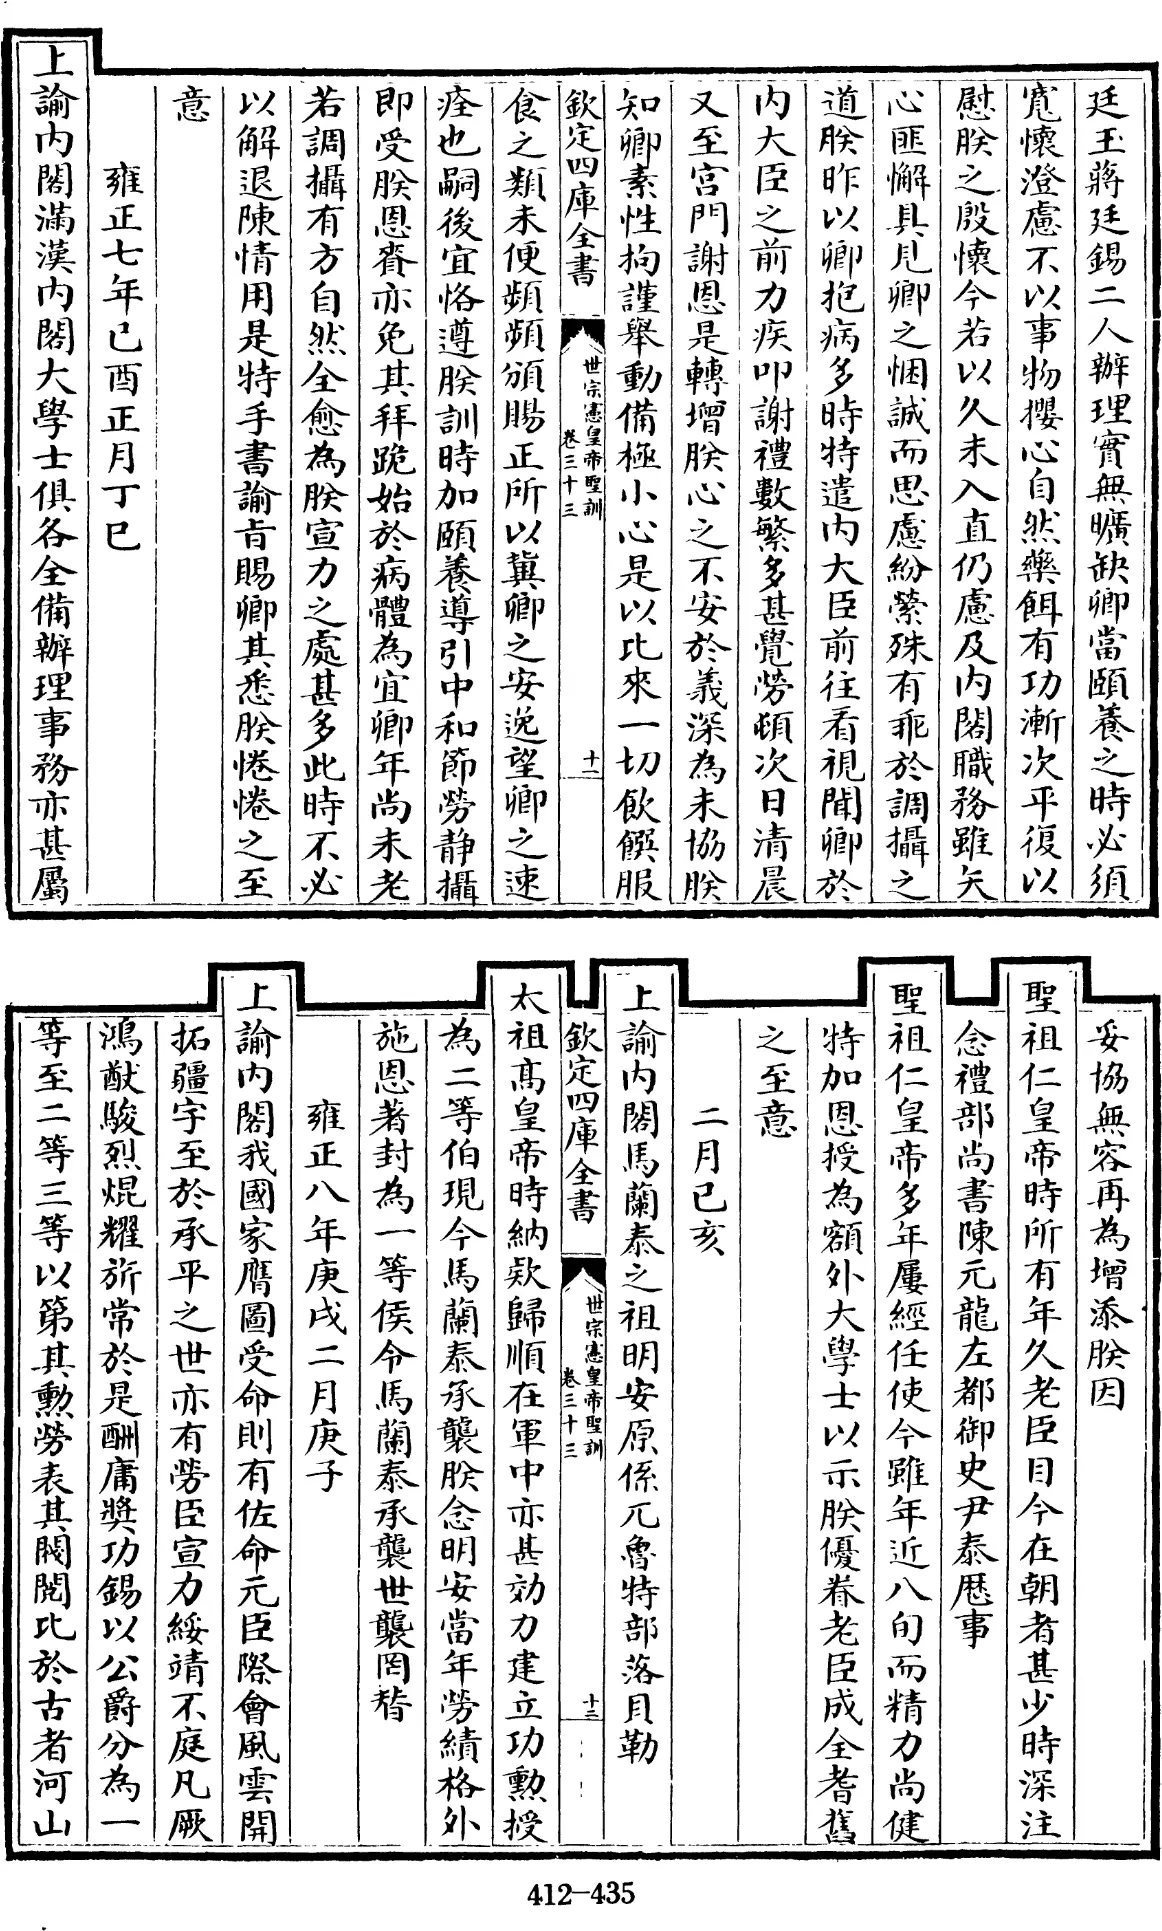 廷玉蔣廷錫二人辦理實無曠缺卿當頤養之時必須
寛懷澄慮不以事物攖心自然藥餌有功漸次平復以
慰朕之殷懷今若以久未入直仍慮及内閣職務雖矢
心匪懈具見卿之悃誠而思慮紛縈殊有乖於調攝之
道朕昨以卿抱病多時特遣内大臣前往看視聞卿於
内大臣之前力疾叩謝禮數繁多甚覺勞頓次日清晨
又至宮門謝恩是轉增朕心之不安於義深為未協朕
知卿素性拘謹舉動備極小心是以比來一切飲饌服
欽定四庫全書
世宗憲皇帝聖訓
卷三十三
十二
食之類未便頻頻頒賜正所以冀卿之安逸望卿之速
痊也嗣後宜恪遵朕訓時加頤養導引中和節勞静攝
即受朕恩賚亦免其拜跪始於病體為宜卿年尚未老
若調攝有方自然全愈為朕宣力之處甚多此時不必
以解退陳情用是特手書諭旨賜卿其悉朕惓惓之至
意
雍正七年已酉正月丁巳
上諭内閣滿漢内閣大學士俱各全備辦理事務亦甚屬
妥協無容再為增添朕因
聖祖仁皇帝時所有年久老臣目今在朝者甚少時深注
念禮部尚書陳元龍左都御史尹泰歷事
聖祖仁皇帝多年屢經任使今雖年近八旬而精力尚健
特加恩授為額外大學士以示朕優眷老臣成全耆舊
之至意
二月已亥
上諭内閣馬蘭泰之祖明安原係兀魯特部落貝勒
欽定四庫全書
世宗憲皇帝聖訓
卷三十三
十三
太祖髙皇帝時納欵歸順在軍中亦甚効力建立功勲授
為二等伯現今馬蘭泰承襲朕念明安當年勞績格外
施恩著封為一等侯令馬蘭泰承襲世襲罔替
雍正八年庚戌二月庚子
上諭内閣我國家膺圖受命則有佐命元臣際會風雲開
拓疆宇至於承平之世亦有勞臣宣力綏靖不庭凡厥
鴻猷駿烈焜耀旂常於是酬庸奬功錫以公爵分為一
等至二等三等以第其勲勞表其閥閲比於古者河山
412-435